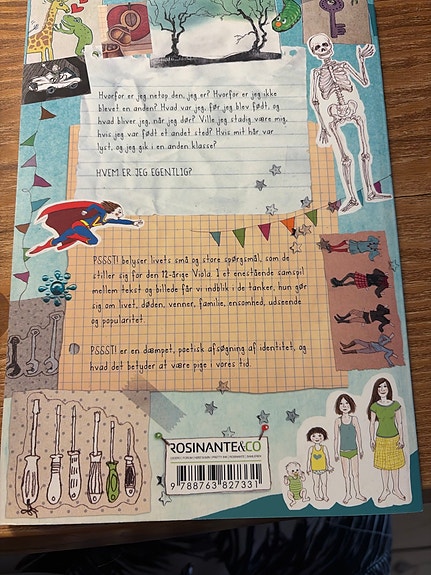 Hvorfor er jeg netop den, jeg er? Hvorfor er jeg ikke
blevet en anden? Hvad var jeg, før jeg blev født, og
hvad bliver jeg, når jeg dør? Ville jeg stadig være mig,
hvis jeg var født et andet sted? Hvis mit hår var
lyst, og jeg gik i en anden klasse?
HVEM ER JEG EGENTLIG?
PSSST! belyser livets små og store spørgsmål, som de
stiller sig for den 12-årige Viola. I et enestående samspil
mellem tekst og billede får vi indblik i de tanker, hun gør
sig om livet, døden, venner, familie, ensomhed, udseende
og popularitet.
PSSST! er en dæmpet, poetisk afsøgning af identitet, og
hvad det betyder at være pige i vores tid.
ROSINANTE&CO
9 788763 827331